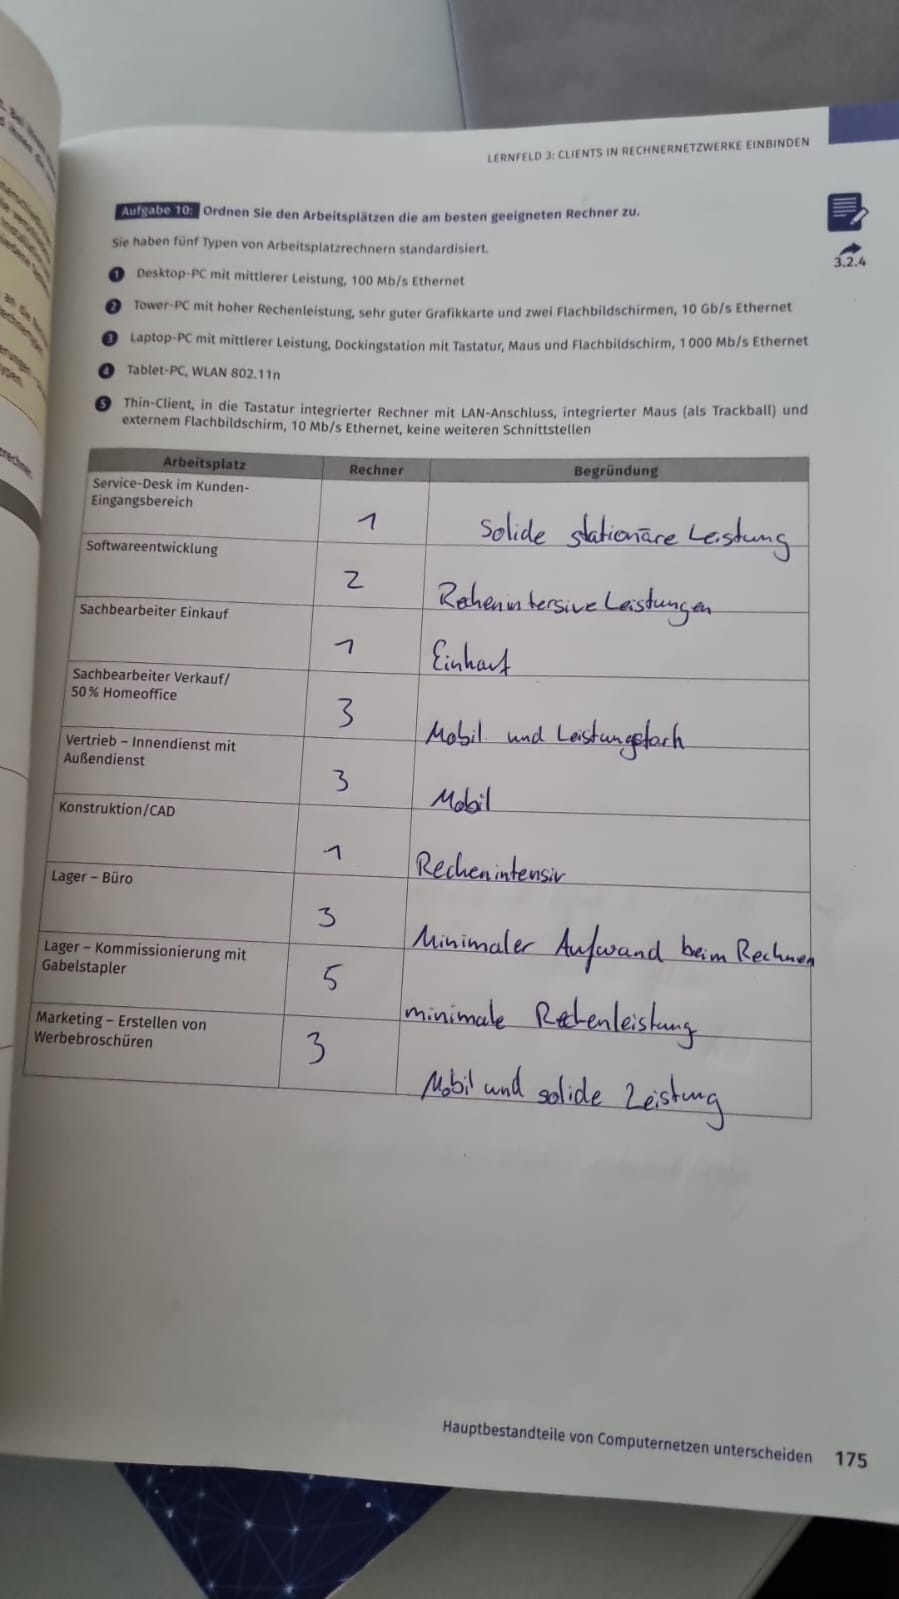 LERNFELD 3: CLIENTS IN RECHNERNETZWERKE EINBINDEN
Aufgabe 10: Ordnen Sie den Arbeitsplätzen die am besten geeigneten Rechner zu.
3.2.4
Sie haben fünf Typen von Arbeitsplatzrechnern standardisiert.
1 Desktop-PC mit mittlerer Leistung, 100 Mb/s Ethernet
2 Tower-PC mit hoher Rechenleistung, sehr guter Grafikkarte und zwei Flachbildschirmen, 10 Gb/s Ethernet
3 Laptop-PC mit mittlerer Leistung, Dockingstation mit Tastatur, Maus und Flachbildschirm, 1000 Mb/s Ethernet
4 Tablet-PC, WLAN 802.11n
5 Thin-Client, in die Tastatur integrierter Rechner mit LAN-Anschluss, integrierter Maus (als Trackball) und
externem Flachbildschirm, 10 Mb/s Ethernet, keine weiteren Schnittstellen
Arbeitsplatz Rechner Begründung
Service-Desk im Kunden-
Eingangsbereich
1 Solide stationäre Leistung
Softwareentwicklung
2 Rechenintersive Leistungen
Sachbearbeiter Einkauf
1 Einkauf
Sachbearbeiter Verkauf/
50 % Homeoffice
3 Mobil und
Vertrieb – Innendienst mit
Außendienst
3 Mobil
Konstruktion/CAD
1 Rechenintensiv
Lager – Büro
3 Minimaler Aufwand beim Rechnen
Lager – Kommissionierung mit
Gabelstapler
5 minimale Rechenleistung
Marketing – Erstellen von
Werbebroschüren
3 Mobil und solide Leistung
Hauptbestandteile von Computernetzen unterscheiden 175